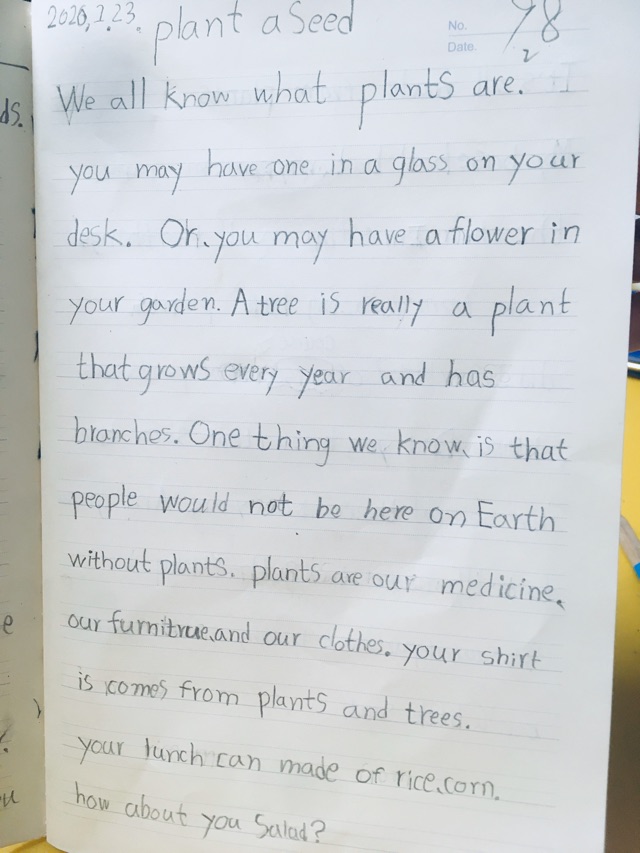 2020,2.23.
plant a Seed
No.
Date.
98
2
We all know what plants are.
you may have one in a glass on your
desk. Or, you may have a flower in
your garden. A tree is really a plant
that grows every year and has
branches. One thing we know, is that
people would not be here on Earth
without plants. plants are our medicine,
our furnitrue,and our clothes. your shirt
is comes from plants and trees.
your lunch can made of rice,corn.
how about you Salad?
ds.
e
u